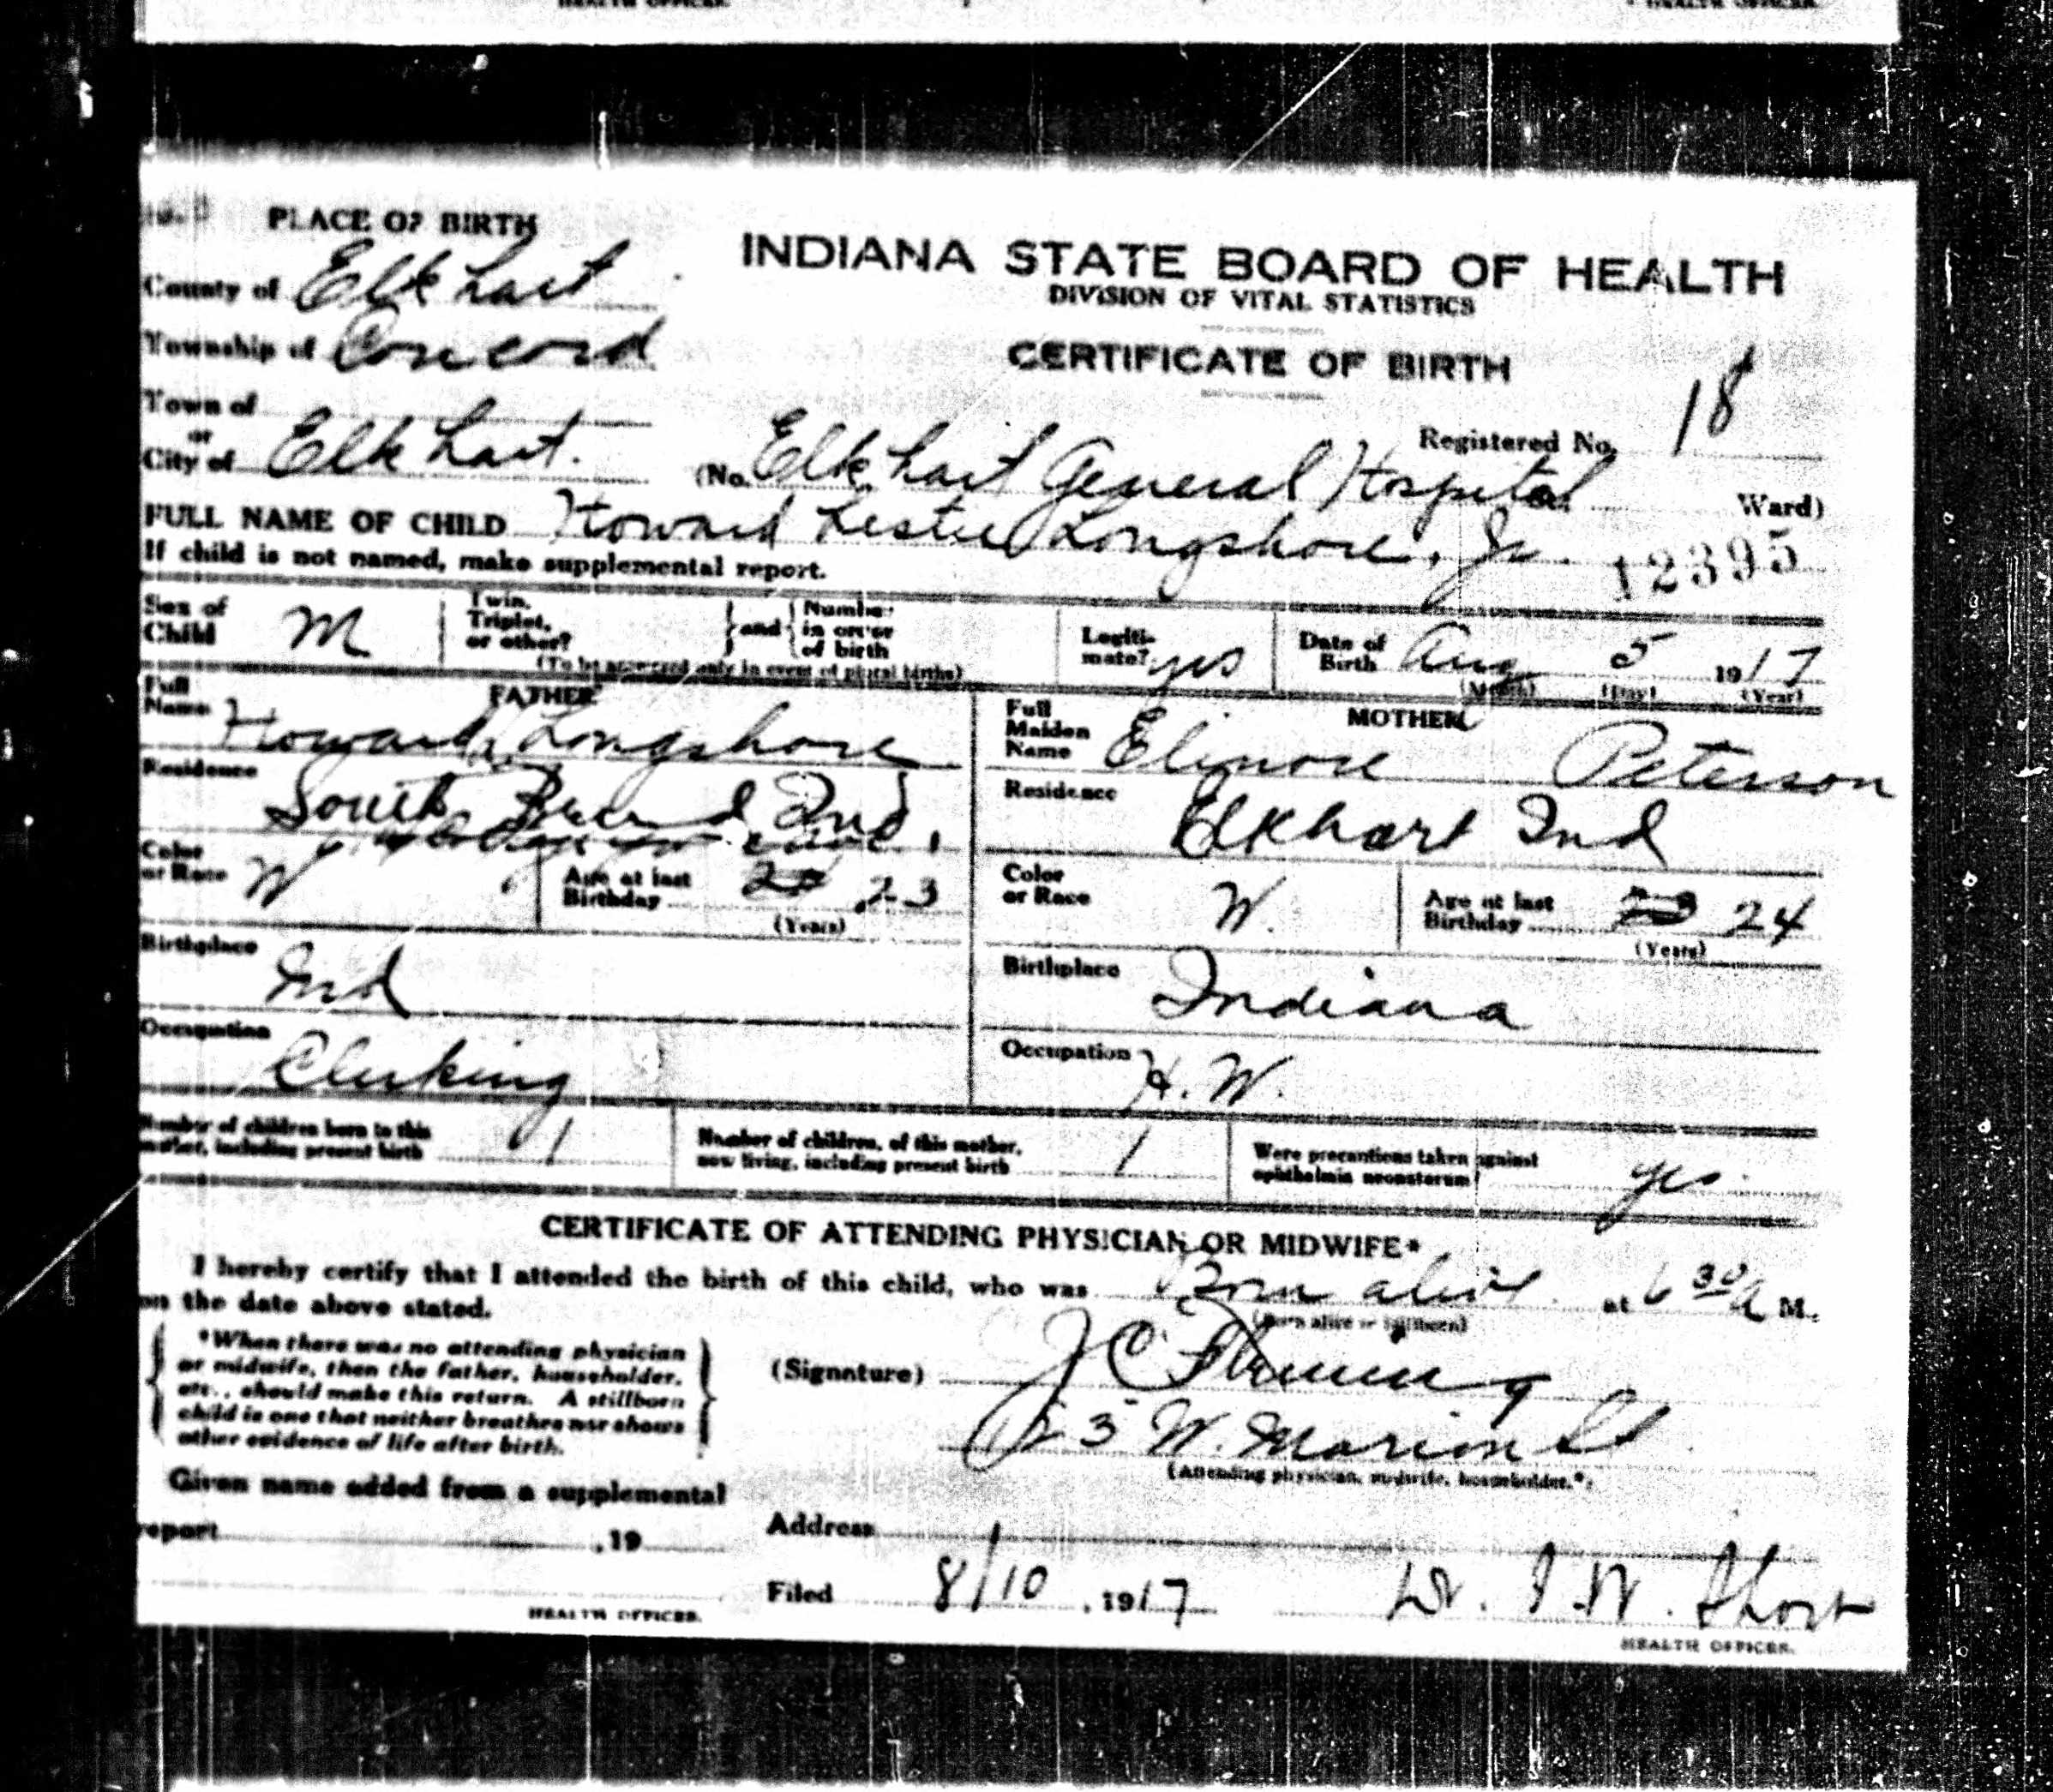 HEALTH OFFICER.
HEALTH OFFICER.
PLACE OF BIRTH
County of Elkhart
Township of Concord
Town of
or
City of Elkhart.
INDIANA STATE BOARD OF HEALTH
DIVISION OF VITAL STATISTICS
CERTIFICATE OF BIRTH
Registered No. 18
(No. Elkhart General Hospital Ward)
FULL NAME OF CHILD Howard Lester Longshore, Jr.
12395
If child is not named, make supplemental report.
Sex of Child M
Twin, Triplet, or other? } and { Number in order of birth
(To be answered only in event of plural births)
Legitimate? yes
Date of Birth Aug 5 1917
(Month) (Day) (Year)
FATHER
Full Name Howard Longshore
Residence South Bend Ind.
Color or Race W
Age at last Birthday 23
(Years)
Birthplace Ind
Occupation Clerking
MOTHER
Full Maiden Name Elinore Peterson
Residence Elkhart Ind
Color or Race W.
Age at last Birthday 23 24
(Years)
Birthplace Indiana
Occupation H. W.
Number of children born to this mother, including present birth 1
Number of children, of this mother, now living, including present birth 1
Were precautions taken against ophthalmia neonatorum? yes
CERTIFICATE OF ATTENDING PHYSICIAN OR MIDWIFE*
I hereby certify that I attended the birth of this child, who was Born alive at 6 30 A M.,
on the date above stated.
(Born alive or stillborn)
*When there was no attending physician
or midwife, then the father, householder,
etc., should make this return. A stillborn
child is one that neither breathes nor shows
other evidence of life after birth.
(Signature) J C Fleming
W. Marion St
(Attending physician, midwife, householder.*)
Given name added from a supplemental
report , 19
HEALTH OFFICER.
Address
Filed 8/10, 1917 Dr. I. W. Short
HEALTH OFFICER.